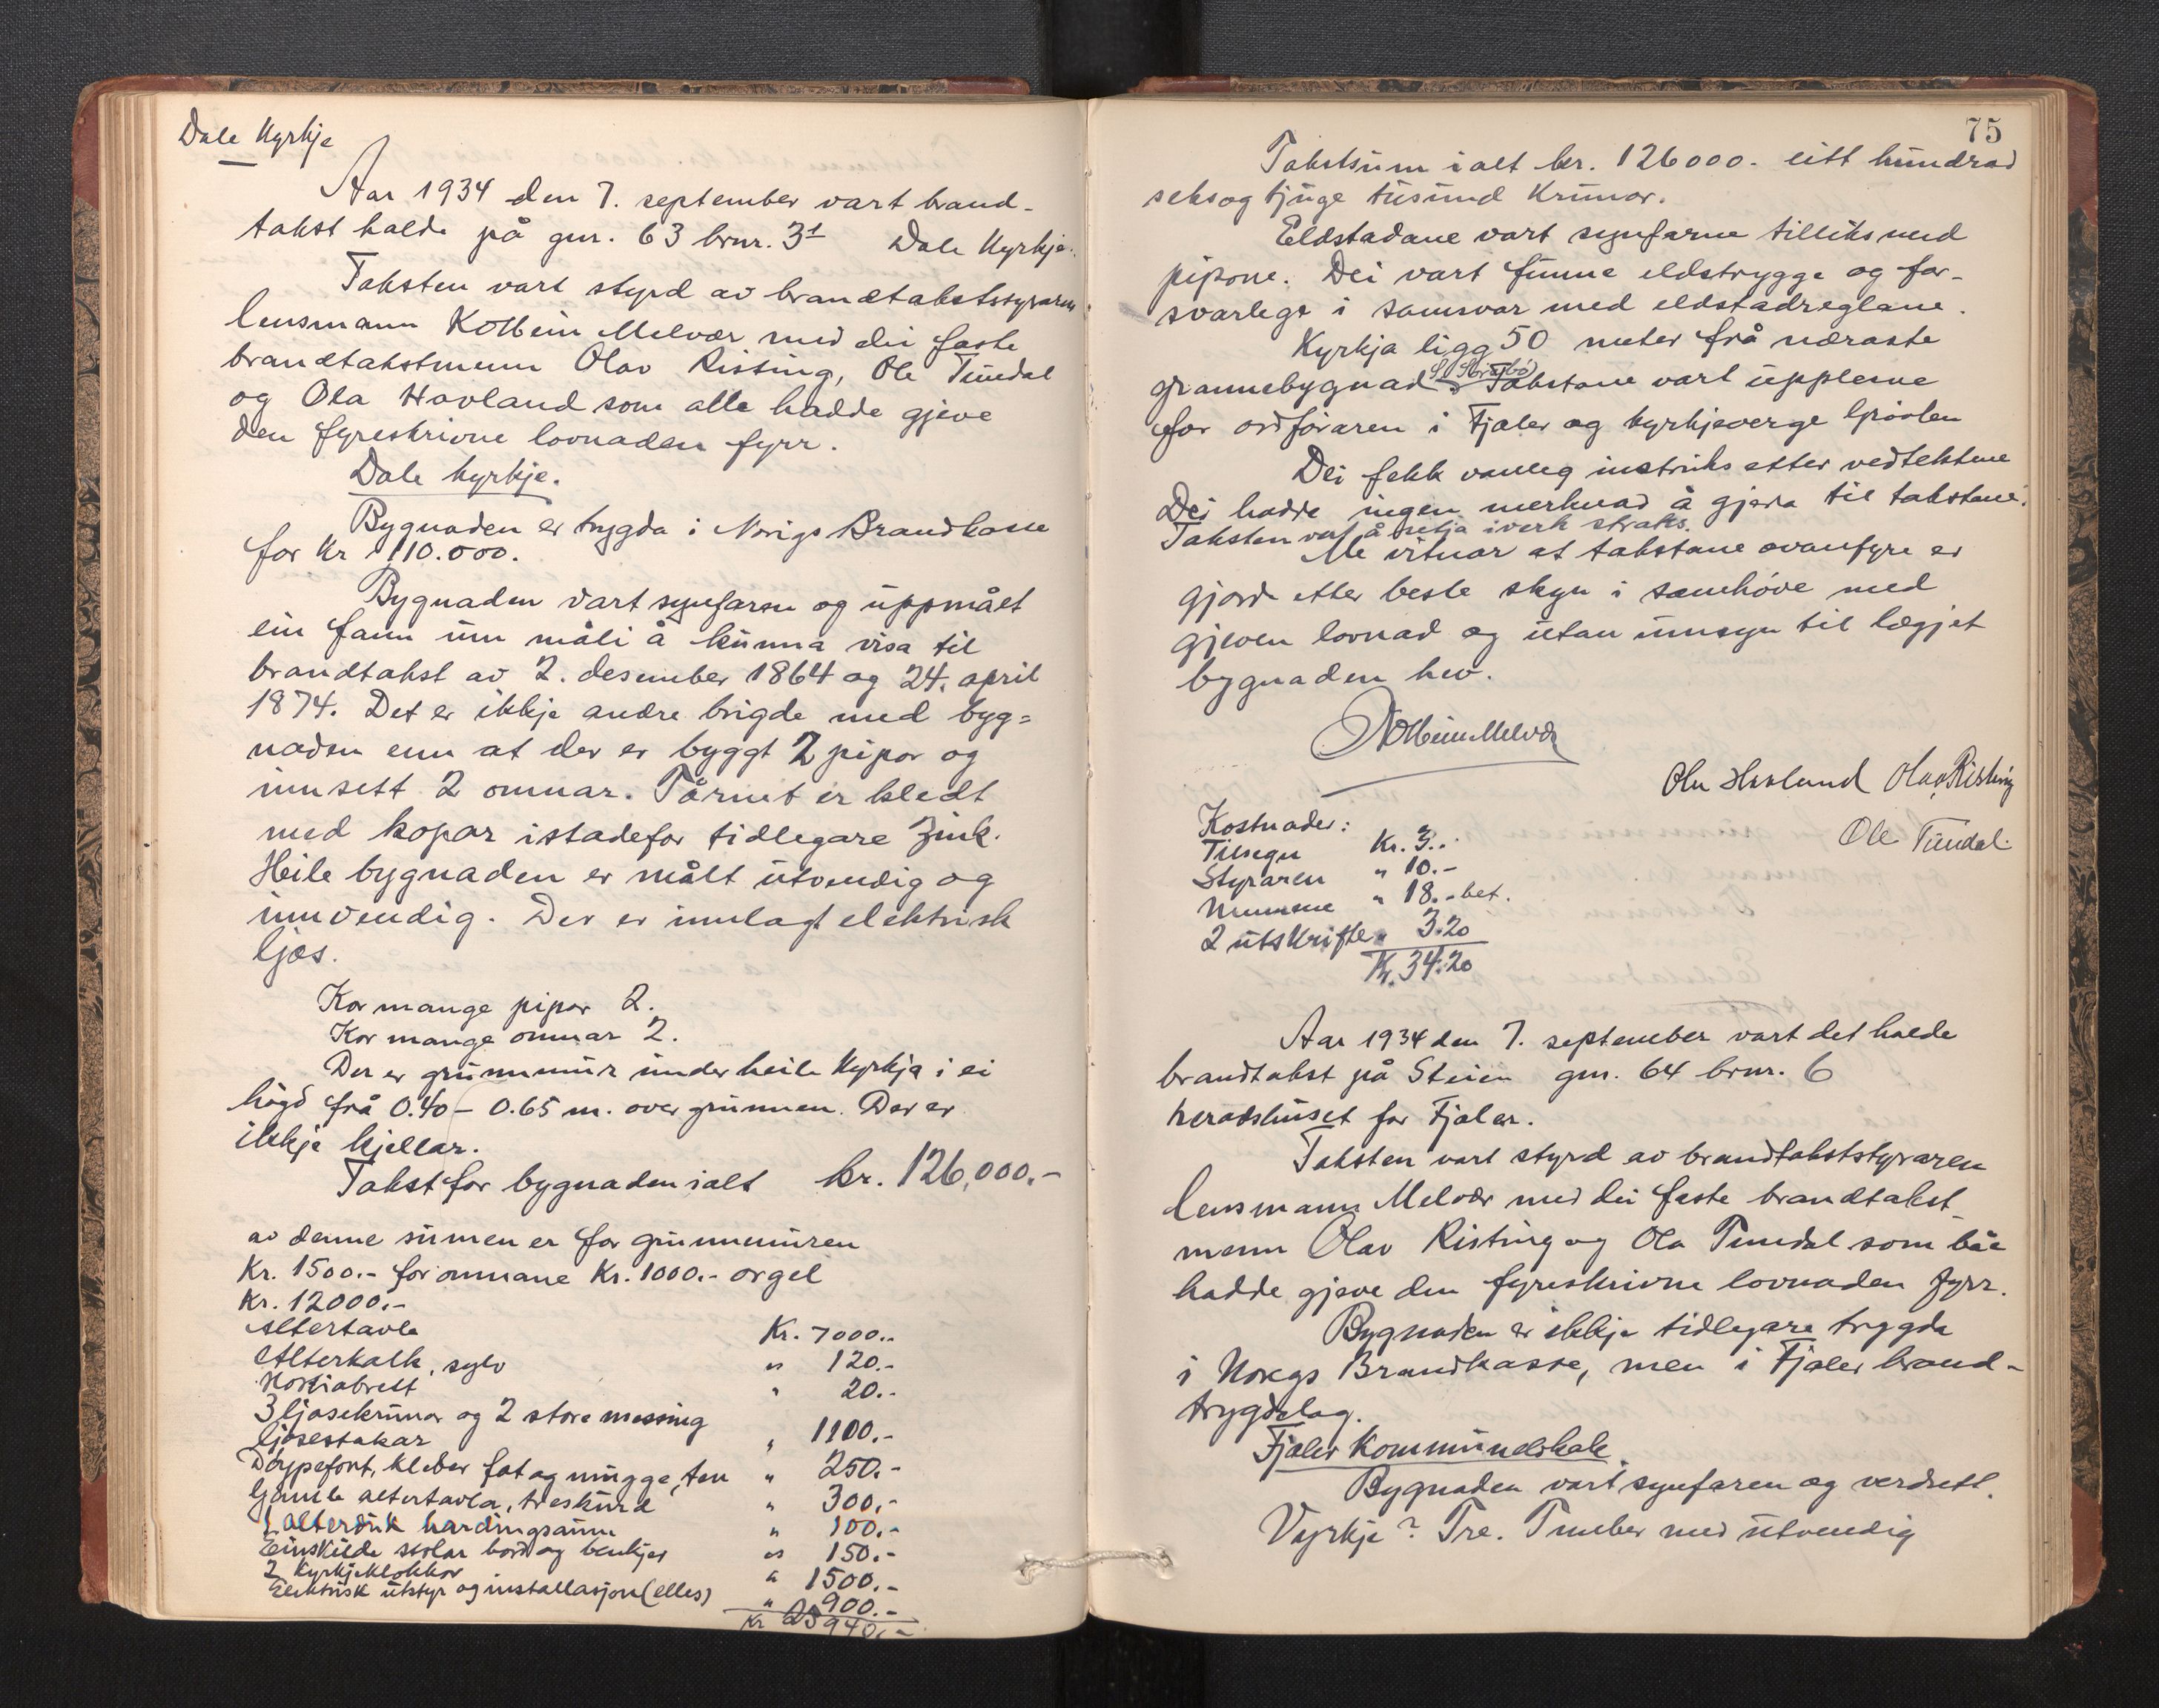 Dale Kyrkje
Aar 1934 den 7. september vart brand-
takst halde på gnr. 63 brnr. 31 Dale Kyrkje.
Taksten vart styrd av brandtakststyraren
lensmann Kolbein Melvær med dei faste
brandtakstmenn Olav Risting, Ole Tundal
og Ola Hovland som alle hadde gjeve
den fyreskrivne lovnaden fyrr.
Dale kyrkje.
Bygnaden er trygda i Norigs Brandkasse
for Kr 110.000.
Bygnaden vart synfaren og uppmålt
ein fann um måli å kunna visa til
brandtakst av 2. desember 1864 og 24. april
1874. Det er ikkje andre brigde med byg=
naden enn at der er byggt 2 pipor og
innsett 2 omnar. Tårnet er kledt
med kopar istadefor tidlegare zink.
Heile bygnaden er målt utvendig og
innvendig. Der er innlagt elektrisk
ljos.
Kor mange pipor 2.
Kor mange omnar 2.
Der er grunnmur under heile Kyrkja i ei
høgd frå 0.40 - 0.65 m. over grunnen. Der er
ikkje kjellar.
Takst for bygnaden ialt kr. 126,000.-
av denne sumen er for grunnmuren
Kr. 1500.- for omnane Kr. 1000.- orgel
Kr. 12000.-
Altertavle Kr. 7000.-
Alterkalk, sylv " 120.-
Hostiabrett " 20.-
3 ljosekrunor og 2 store messing
ljosestakar " 1100.-
Døypefont, kleber fat og mugge, ten " 250.-
Gamle altertavla, treskurd " 300.-
1 alterduk hardingsaum " 100.-
Einskilde stolar bord og benkjer " 150.-
2 Kyrkjeklokkor " 1500.-
Elektrisk utstyr og installasjon (elles) " 900.-
Kr 25940.-
75
Takstsum ialt kr. 126000.- eitt hundrad
seksog tjuge tusund Krunor.
Eldstadane vart synfarne tilliks med
pipone. Dei vart funne eldstrygge og for-
svarlege i samsvar med eldstadreglane.
Kyrkja ligg 50 meter frå næraste
grannebygnad Takstane vart upplesne
for ordføraren i Fjaler og kyrkjeverge
Dei fekk vanleg instruks etter vedtektene
Dei hadde ingen merknad å gjera til takstane.
Taksten vert å setja iverk straks.
Me vitnar at takstane ovanfyre er
gjord etter beste skyn i samhøve med
gjeven lovnad og utan umsyn til lægjet
bygnaden hev.
Kolbein Melvær
Ola Hovland Olav Risting
Ole Tundal.
Kostnader:
Tilsegn Kr. 3..
Styraren " 10.-
Mennene " 18.- bet.
2 utskrifter " 3.20
Kr. 34.20
Aar 1934 den 7. september vart det halde
brandtakst på Steien gnr. 64 brnr. 6
heradshuset for Fjaler.
Taksten vart styrd av brandtakststyraren
lensmann Melvær med dei faste brandtakst-
menn Olav Risting og Ola Tundal som båe
hadde gjeve den fyreskrivne lovnaden fyrr.
Bygnaden er ikkje tidlegare trygda
i Noregs Brandkasse, men i Fjaler brand-
trygdelag.
Fjaler Kommunelokale
Bygnaden vart synfaren og verdsett.
Vyrkje? Tre. Tømber med utvendig